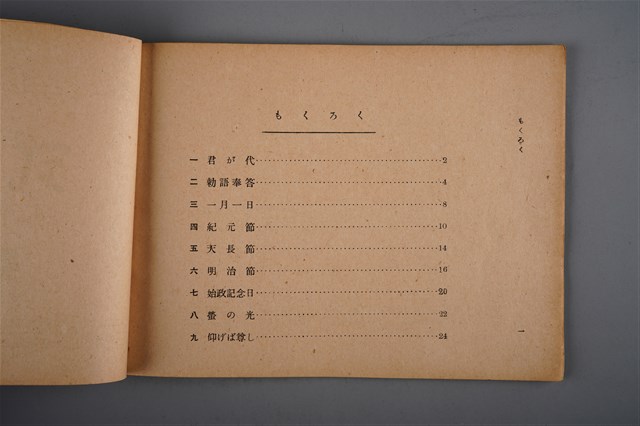 もくろく
一 君が代 2
二 勅語奉答 4
三 一月一日 8
四 紀元節 10
五 天長節 14
六 明治節 16
七 始政記念日 20
八 螢の光 22
九 仰げば尊し 24
もくろく
一